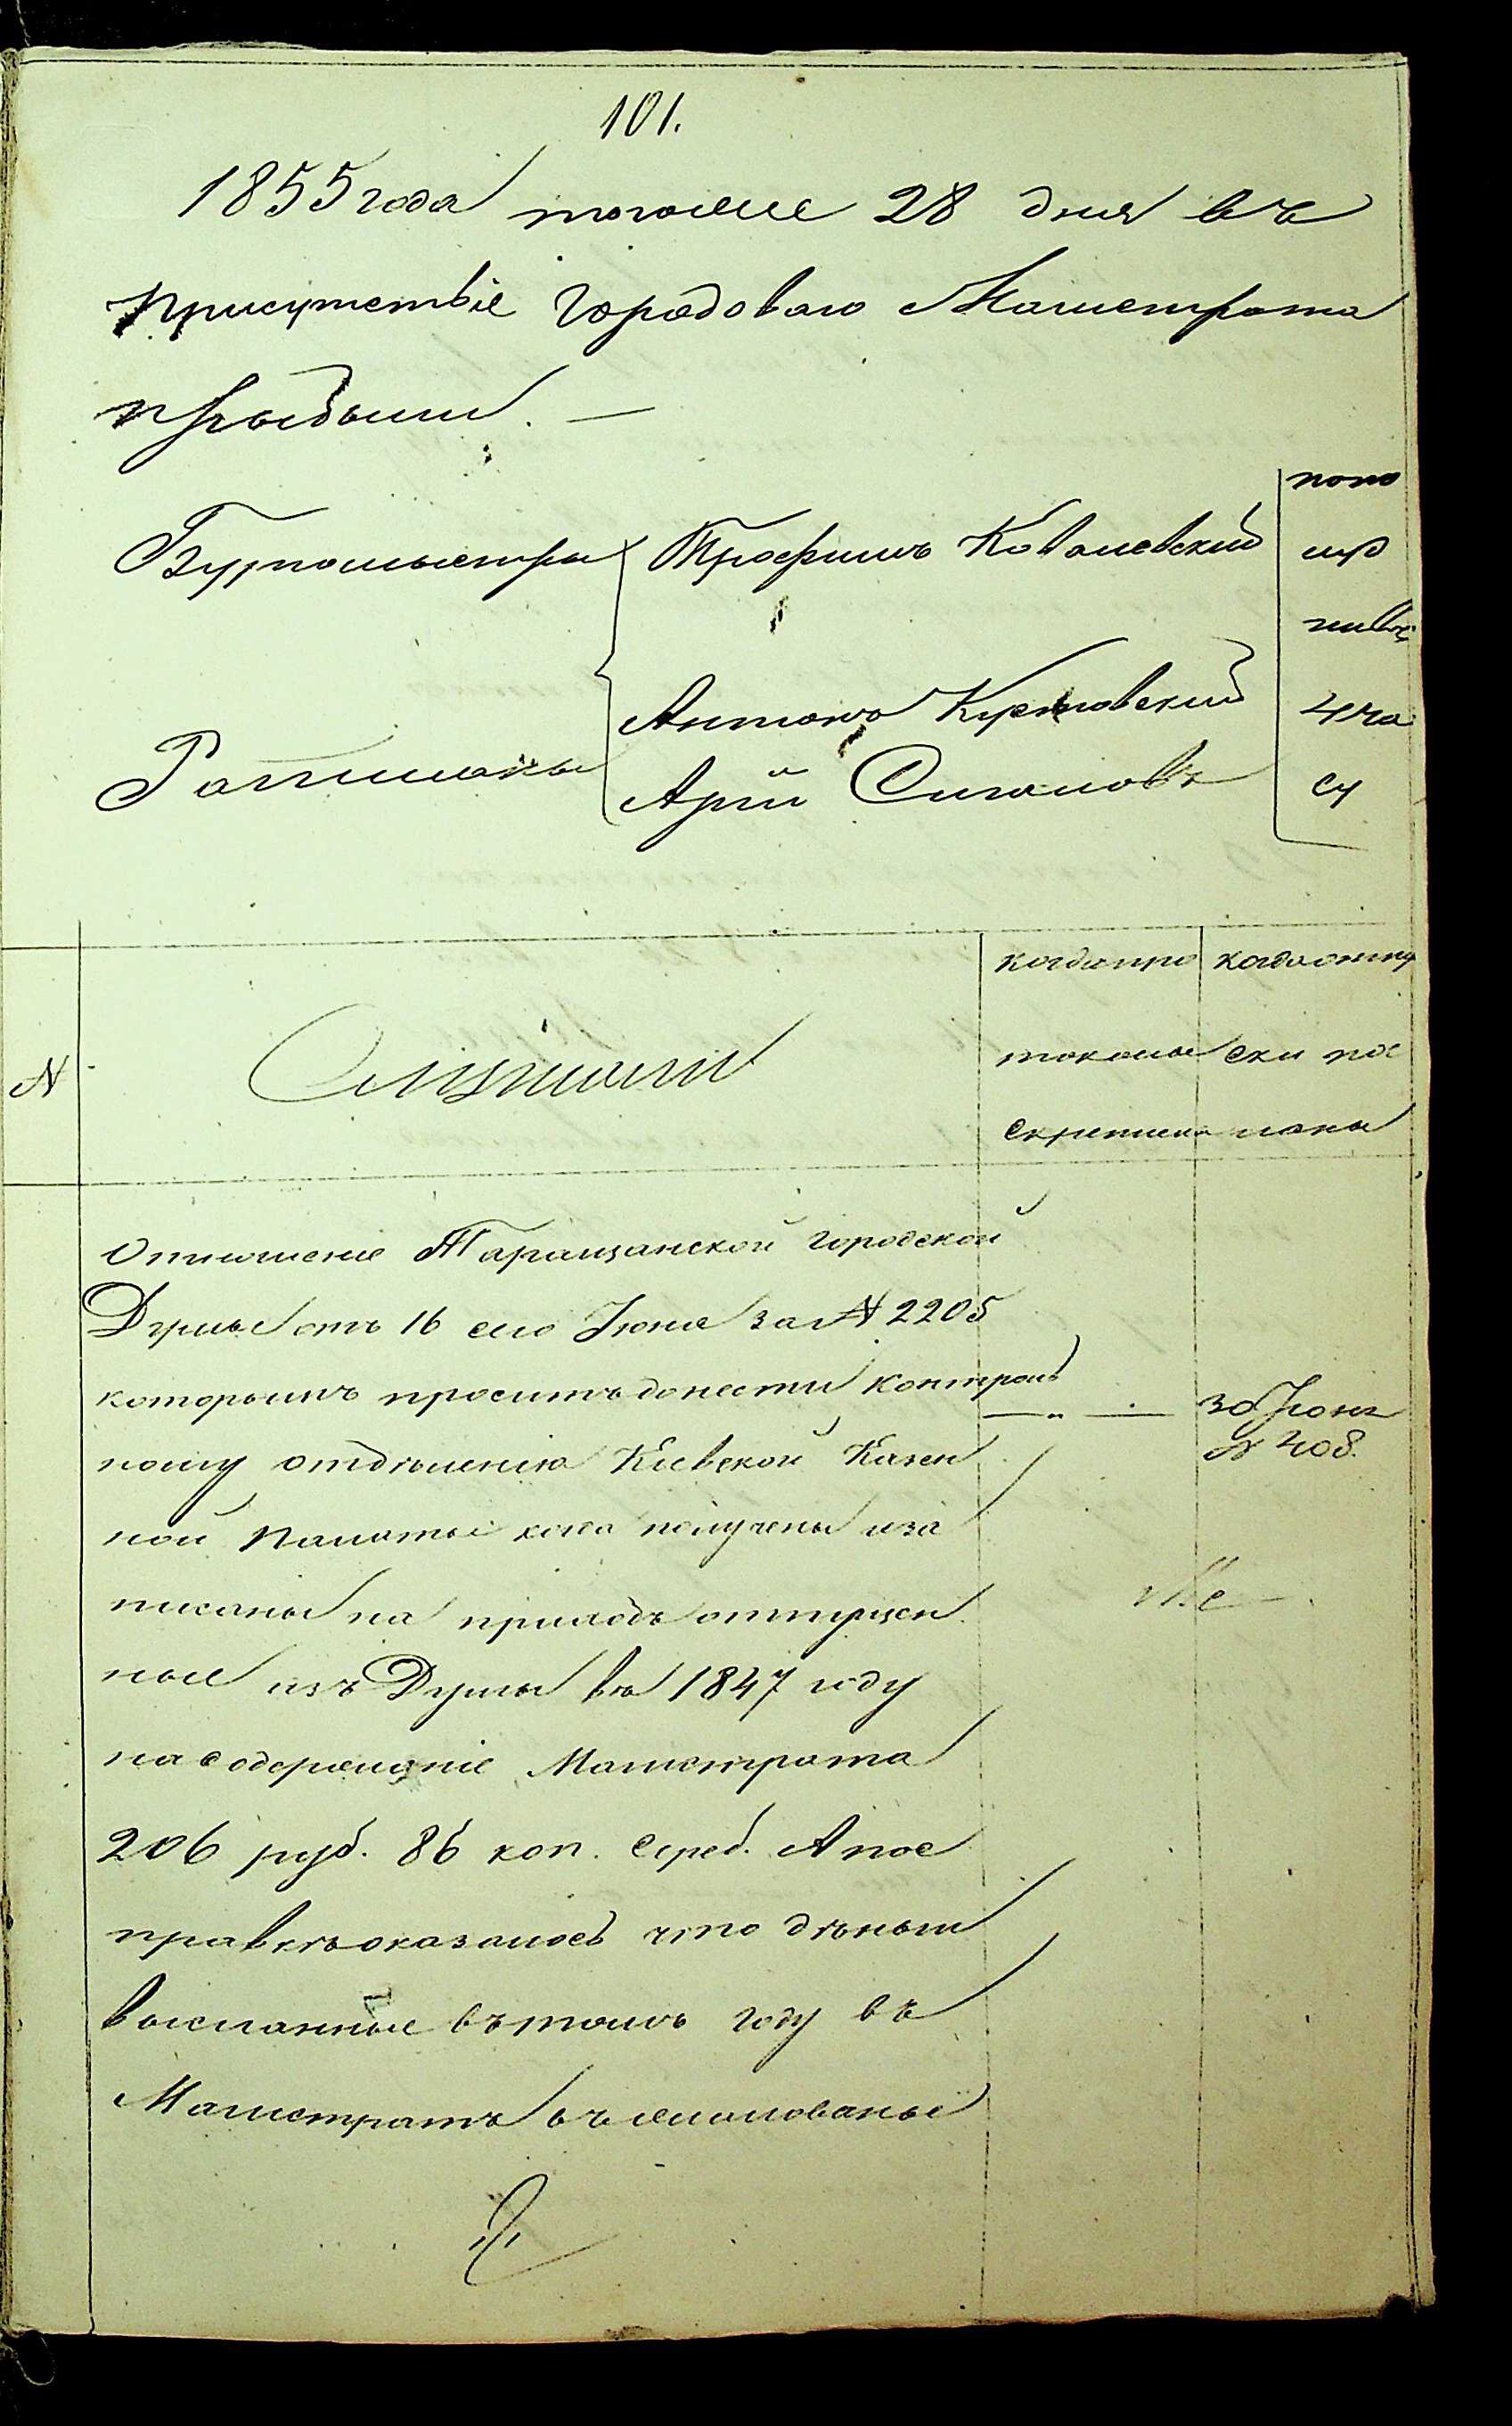 101.
1855 года тогоже 28 дня въ
присутствіе Городоваго Магистрата
прибыли. —
Бургомыстры Трофимъ Ковалевскій
Антонъ
Ратманы
Арій Сигаловъ
попо
лу
4 ча
су
N
Слушали
когда про
токолы
скреплены
когда отпу
ски пос
ланы
Отношеніе Таращанской городской
Думы отъ 16 сего Іюня за N 2205
которымъ проситъ донести контроль
ному отдѣленію Кіевской Казен
ной Палаты когда получены и за
писаны на приходъ отпущен
ные изъ Думы въ 1847 году
на содержаніе Магистрата
206 руб. 86 коп. сереб. А по с
правкѣ оказалось что дѣньги
высланные въ томъ году въ
Магистратъ въ жалованье
30 Іюня
N 408.